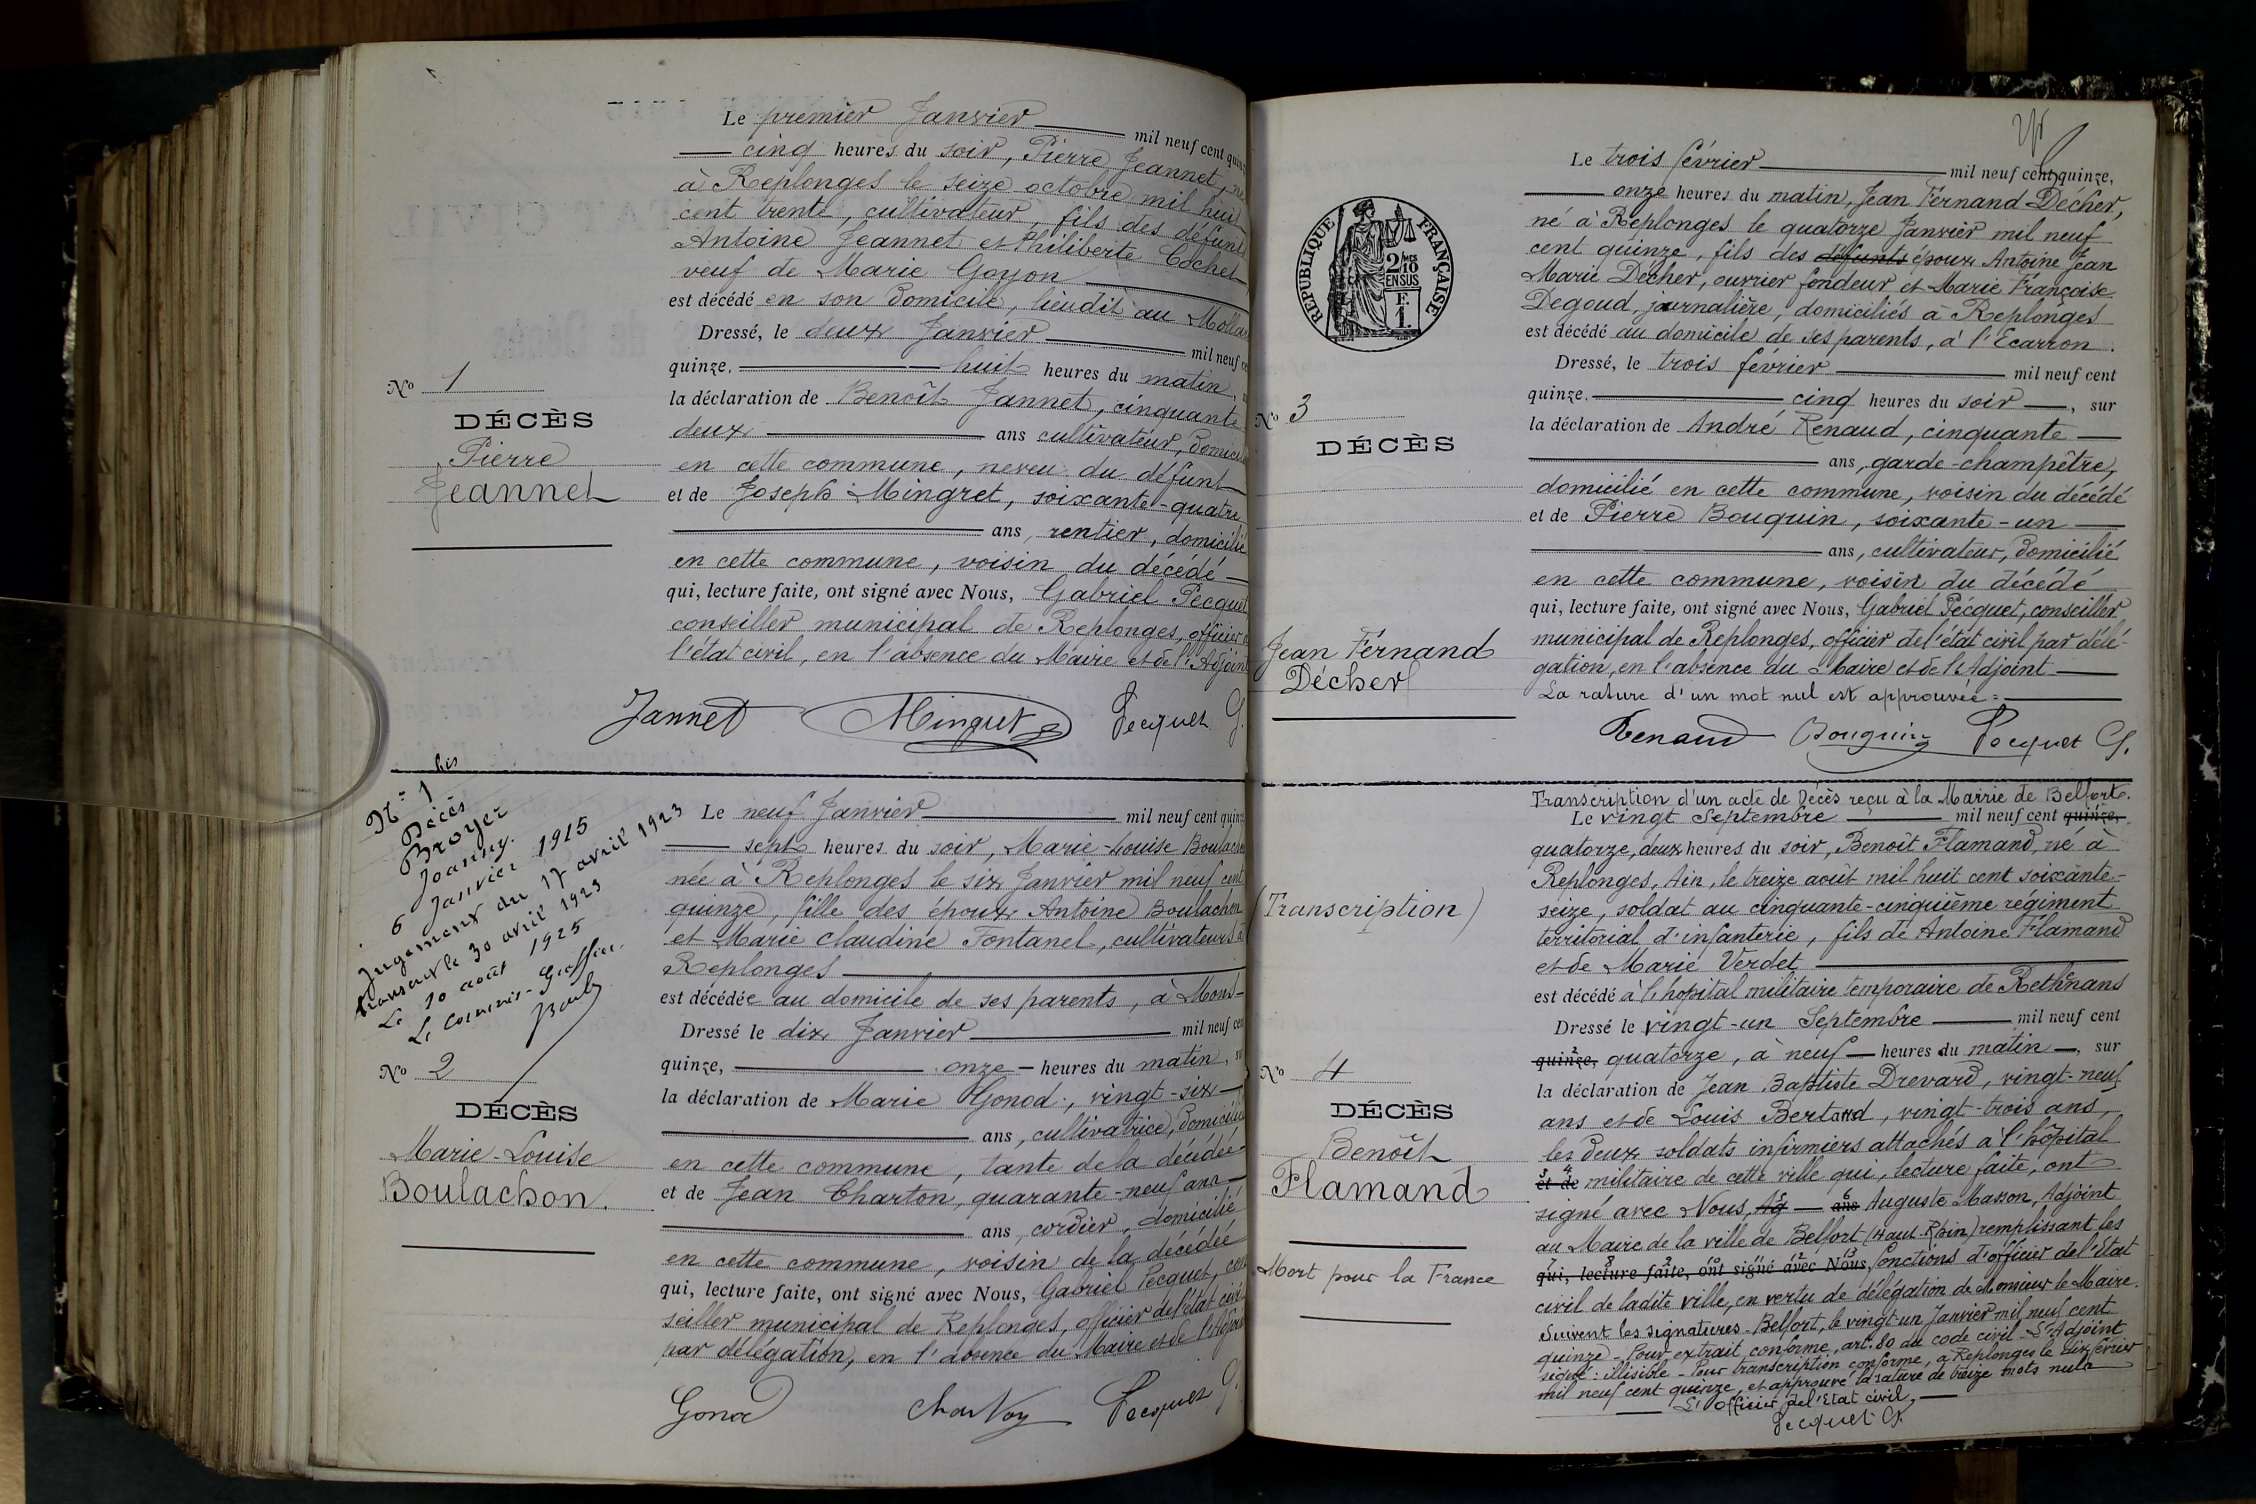 Le premier Janvier mil neuf cent
cinq heures du soir, Pierre Jeannet,
à Replonges le seize octobre mil
cent trente, cultivateur, fils des
Antoine Jeannet et Philiberte Cochet
veuf de Marie Goyon
est décédé en son domicile, lieudit au
Dressé, le deux Janvier mil neuf
quinze, huit heures du matin,
la déclaration de Benoît Jannet, cinquante
deux ans cultivateur,
en cette commune, neveu du défunt
et de Joseph Mingret, soixante-quatre
ans, rentier, domicilié
en cette commune, voisin du décédé
qui, lecture faite, ont signé avec Nous, Gabriel Pecquet
conseiller municipal de Replonges, officier
l'état civil, en l'absence du Maire et de l'Adjoint
Jannet Mingret Pecquet G.
No 1
DÉCÈS
Pierre
Jeannet
No 1 bis
Décès
Broyer
Joanny.
6 Janvier 1915
Jugement du 17 avril 1923
transcrit le 30 avril 1923
Le 10 août 1925
Le commis-Greffier.
No 2
DÉCÈS
Marie-Louise
Boulachon.
Le neuf Janvier mil neuf cent
sept heures du soir, Marie-Louise
née à Replonges le six Janvier mil neuf cent
quinze, fille des époux Antoine Boulachon
et Marie Claudine Fontanel, cultivateurs à
Replonges
est décédée au domicile de ses parents, à
Dressé le dix Janvier mil neuf
quinze, onze heures du matin,
la déclaration de Marie Gonod, vingt-six
ans, cultivatrice,
en cette commune, tante de la décédée
et de Jean Charton, quarante-neuf ans
ans, cordier, domicilié
en cette commune, voisin de la décédée
qui, lecture faite, ont signé avec Nous, Gabriel Pecquet,
seiller municipal de Replonges, officier de l'état
par délégation, en l'absence du Maire et de
Gonod Pecquet G.
RÉPUBLIQUE FRANÇAISE
2/10
EN SUS
F.
1.
Le trois février mil neuf cent quinze,
onze heures du matin, Jean Fernand Décher,
né à Replonges le quatorze Janvier mil neuf
cent quinze, fils des défunts époux Antoine Jean
Marie Décher, ouvrier fondeur et Marie Françoise
Degoud, journalière, domiciliés à Replonges
est décédé au domicile de ses parents, à l'Ecarron.
Dressé, le trois février mil neuf cent
quinze. cinq heures du soir, sur
la déclaration de André Renaud, cinquante
ans, garde-champêtre,
domicilié en cette commune, voisin du décédé
et de Pierre Bouquin, soixante-un
ans, cultivateur, domicilié
en cette commune, voisin du décédé
qui, lecture faite, ont signé avec Nous, Gabriel Pecquet, conseiller
municipal de Replonges, officier de l'état civil par délé-
gation, en l'absence du Maire et de l'Adjoint
La rature d'un mot nul est approuvée =
Renaud Bouquin Pecquet G.
No 3
DÉCÈS
Jean Fernand
Décher
Transcription d'un acte de Décès reçu à la Mairie de Belfort.
Le vingt Septembre mil neuf cent quinze,
quatorze, deux heures du soir, Benoît Flamand, né à
Replonges, Ain, le treize août mil huit cent soixante-
seize, soldat au cinquante-cinquième régiment
territorial d'infanterie, fils de Antoine Flamand
et de Marie Verdet
est décédé à l'hopital militaire temporaire de Rethenans
Dressé le vingt-un Septembre mil neuf cent
quinze, quatorze, à neuf heures du matin, sur
la déclaration de Jean Baptiste Drevard, vingt-neuf
ans et de Louis Bertand, vingt-trois ans,
les deux soldats infirmiers attachés à l'hôpital
et de militaire de cette ville qui, lecture faite, ont
signé avec Nous, ans Auguste Masson, Adjoint
au Maire de la ville de Belfort (Haut-Rhin) remplissant les
qui, lecture faite, ont signé avec Nous, fonctions d'officier de l'Etat
civil de ladite ville, en vertu de délégation de Monsieur le Maire.
Suivent les signatures - Belfort, le vingt-un Janvier mil neuf cent
quinze - Pour extrait conforme, art. 80 du code civil - L'Adjoint
signé : illisible - Pour transcription conforme, à Replonges le dix février
mil neuf cent quinze, et approuvé la rature de treize mots nuls
L'Officier de l'Etat civil,
Pecquet G.
(Transcription)
No 4
DÉCÈS
Benoît
Flamand
Mort pour la France